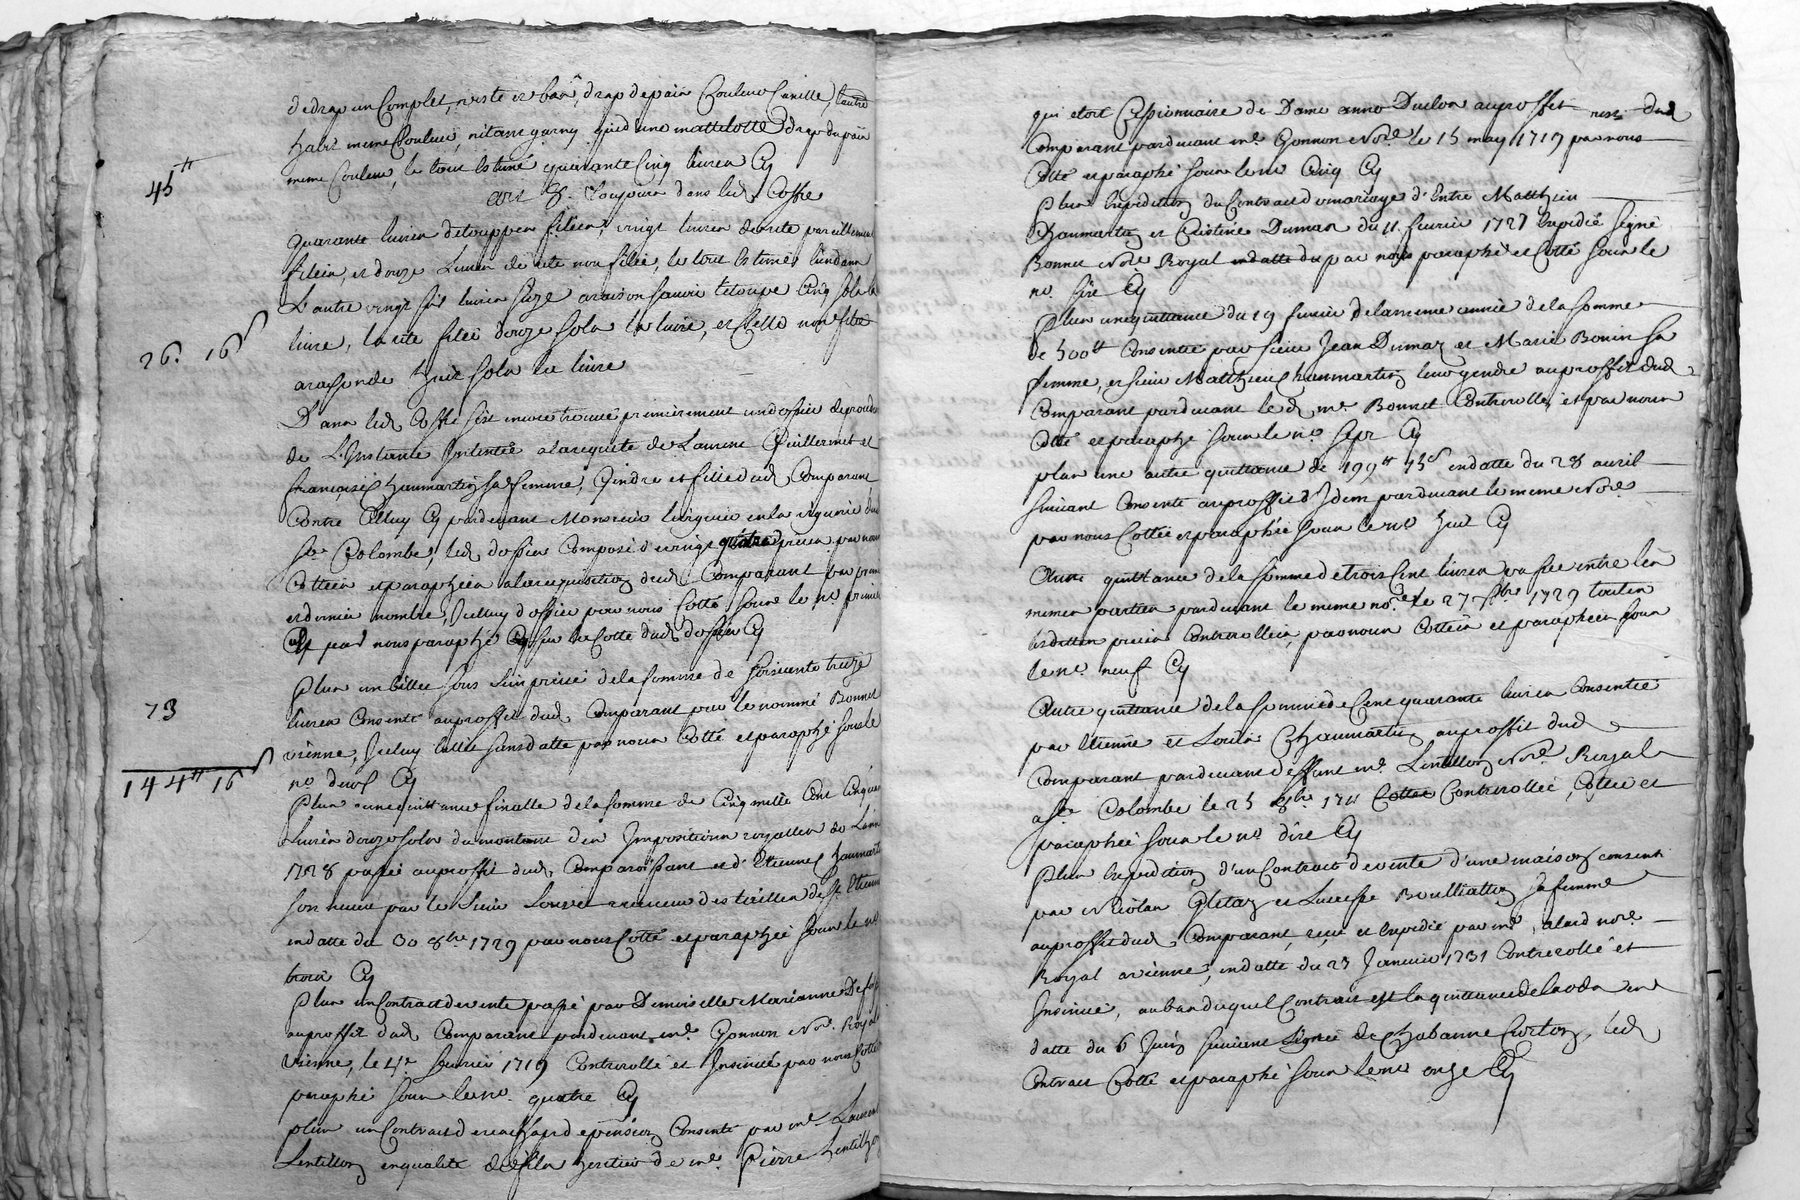 de drap un Complet, veste et bas, drap depaïs Couleur Canelle, l'autre
habit meme Couleur, garny mattelotte drap du païs
meme Couleur, le tout Estimé quarante Cinq livres Cy
45#
art 8. Toujours dans led. Coffre
quarante livres d'etouppes filées, vingt livres de rite pareillement
filées, et douze Livres de rite non filée, le tout Estimé, l'un dans
L'autre vingt six livres seize a raison scavoir l'etoupe Cinq sols la
livre, la rite filée douze sols la livre, et Celle non filée
26. 16s
a raison de huit sols la livre
Dans led. Coffre s'est encore trouvé premierement un dossier de procedure
de L'Instance Intentée a la requete de Laurent Guillermet et
françoise Chaumartin sa femme, Gendre et fille dud. Comparant
Contre Celluy Cy pardevant Monsieur le viguier en la viguerie de
Ste Colombe, led. dossier Composé de vingt quatre pieces par nous
Cottées et paraphées a la requisition dud. Comparant par premier
et dernier nombre, Icelluy dossier par nous Cotté sous le no. premier
par nous paraphé sur la Cotte dud. dossier Cy
Plus un billet sous sein privé de la somme de soixante treize
73
livres Consenti au proffit dud. Comparant par le nommé Bonnet
vienne, Iceluy billet sans datte par nous Cotté et paraphé sous le
144# 16s
no. deux Cy
Plus une quittance finalle de la somme de Cinq mille Cent Cinquante
Livres douze sols du montant des Impositions royalles de Lannée
1728 passée au proffit dud. Comparoissant et d'Etienne Chaumartin
son neveu par le Sieur receveur des tailles de St. Etienne
en datte du 30 8bre 1729 par nous Cotté et paraphée sous le no.
trois Cy
Plus un Contrat de vente passé par Demoiselle Marianne
au proffit dud. Comparant pardevant me. Gonnon Nore. Royal
vienne, le 4e fevrier 1719 Controrollé et Insinué par nous Cotté
paraphé sous le no. quatre Cy
plus un Contrat de rachapt de pension Consenti par me. Laurent
Lentillon en qualité de fils heritier de me. Pierre Lentillon
qui etoit Cessionnaire de Dame anne Duclos au proffit dud.
Comparant pardevant me. Gonnon Nore. le 15 may 1719 par nous
Cotté et paraphé sous le no. Cinq Cy
Plus Expedition du Contrat de mariage d'Entre Matthieu
Chaumartin et Cristine Dumas du 11 fevrier 1727 Expedié signé
Bonnet Nore. Royal par nous paraphé et Cotté sous le
no. six Cy
Plus une quittance du 19 fevrier de la meme année de la somme
de 500# Consentie par sieur Jean Dumas et Marie Bonin sa
femme, et sieur Matthieu Chaumartin leur gendre au proffit dud.
Comparant pardevant led. me. Bonnet Controrollé, et par nous
Cotté et paraphé sous le no. sept Cy
plus une autre quittance de 199# 15s en datte du 28 avril
suivant Consentie au proffit d'Idem pardevant le meme Nore.
par nous Cottée et paraphée sous le no. huit Cy
Autre quittance de la somme de trois Cent livres passée entre les
memes parties pardevant le meme nore. le 27 7bre 1729 toutes
lesdittes pieces Controrollées, par nous Cottées et paraphées sous
le no. neuf Cy
Autre quittance de la somme de Cent quarante livres Consentie
par Etienne et Louis Chaumartin au proffit dud.
Comparant pardevant deffunt me. Lentillon Nore. Royal
a Ste Colombe le 25 8bre 1711 Controrollée, Cottée et
paraphée sous le no. dixe Cy
Plus Expedition d'un Contrat de vente d'une maison consenti
par Nicolas et Lucresse Boulliatton sa femme
au proffit dud. Comparant, reçu et Expedié par me. alard nore.
Royal a vienne, en datte du 23 Janvier 1731 Controrollé et
Insinué, au bas duquel Contrat est la quittance de lods en
datte du 6 Juin suivant signée de Chabanne Curton, led.
Contrat Cotté et paraphé sous le no. onze Cy